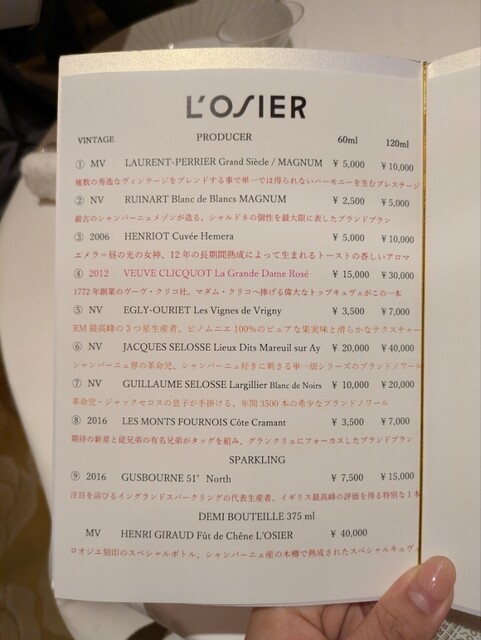 L'OSIER
VINTAGE PRODUCER 60ml 120ml
① MV LAURENT-PERRIER Grand Siècle / MAGNUM ¥ 5,000 ¥ 10,000
複数の秀逸なヴィンテージをブレンドする事で単一では得られないハーモニーを生むプレステージ
② NV RUINART Blanc de Blancs MAGNUM ¥ 2,500 ¥ 5,000
最古のシャンパーニュメゾンが造る、シャルドネの個性を最大限に表したブランドブラン
③ 2006 HENRIOT Cuvée Hemera ¥ 5,000 ¥ 10,000
エメラ=昼の光の女神、12年の長期間熟成によって生まれるトーストの香しいアロマ
④ 2012 VEUVE CLICQUOT La Grande Dame Rosé ¥ 15,000 ¥ 30,000
1772年創業のヴーヴ・クリコ社。マダム・クリコへ捧げる偉大なトップキュヴェがこの一本
⑤ NV EGLY-OURIET Les Vignes de Vrigny ¥ 3,500 ¥ 7,000
RM最高峰の3つ星生産者、ピノムニエ100%のピュアな果実味と滑らかなテクスチャー
⑥ NV JACQUES SELOSSE Lieux Dits Mareuil sur Ay ¥ 20,000 ¥ 40,000
シャンパーニュ界の革命児、シャンパーニュ好きに刺さる単一畑シリーズのブランドノワール
⑦ NV GUILLAUME SELOSSE Largillier Blanc de Noirs ¥ 10,000 ¥ 20,000
革命児・ジャックセロスの息子が手掛ける、年間3500本の希少なブランドノワール
⑧ 2016 LES MONTS FOURNOIS Côte Cramant ¥ 3,500 ¥ 7,000
期待の新星と従兄弟の有名兄弟がタッグを組み、グランクリュにフォーカスしたブランドブラン
SPARKLING
⑨ 2016 GUSBOURNE 51° North ¥ 7,500 ¥ 15,000
注目を浴びるイングランドスパークリングの代表生産者、イギリス最高峰の評価を得る特別な1本
DEMI BOUTEILLE 375 ml
MV HENRI GIRAUD Fût de Chêne L'OSIER ¥ 40,000
ロオジエ刻印のスペシャルボトル、シャンパーニュ産の木樽で熟成されたスペシャルキュヴェ